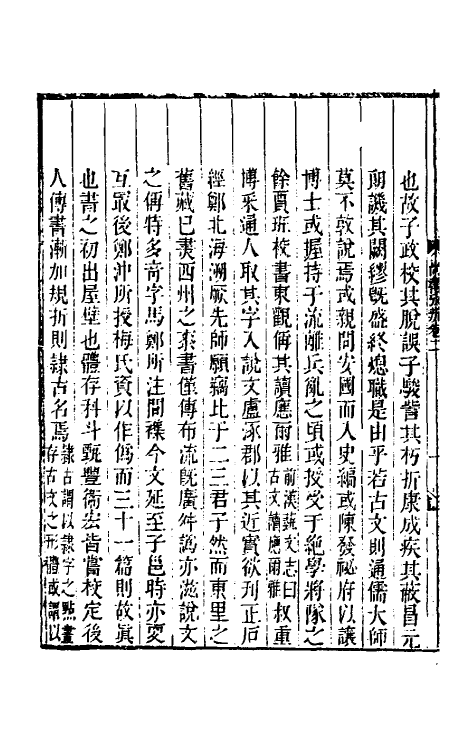 也故子政校其脫誤子駿訾其朽折康成疾其蔽昌元
朗譏其闕繆旣盛終熄職是由乎若古文則通儒大師
莫不敦說焉或親問安國而入史編或陳發祕府以讓
博士或握持于流離兵亂之頃或授受于絶學將隊之
餘賈班校書東觀偁其讀應爾雅前漢藝文志曰古文讀應爾雅叔重
博采通人取其字入說文盧涿郡以其近實欲刊正石
經鄭北海淵厥先師願竊比于二三君子然而東里之
舊藏已煑西州之桼書僅傳布流旣廣舛譌亦滋說文
之偁特多奇字馬鄭所注間襍今文延至子邕時亦更
互冣後鄭沖所授梅氏資以作僞而三十一篇則故眞
也書之初出屋壁也體存科斗甄豐衞宏皆嘗校定後
人傳書漸加規折則隷古名焉隷古謂以隷字之點畫存古文之形體或謂以